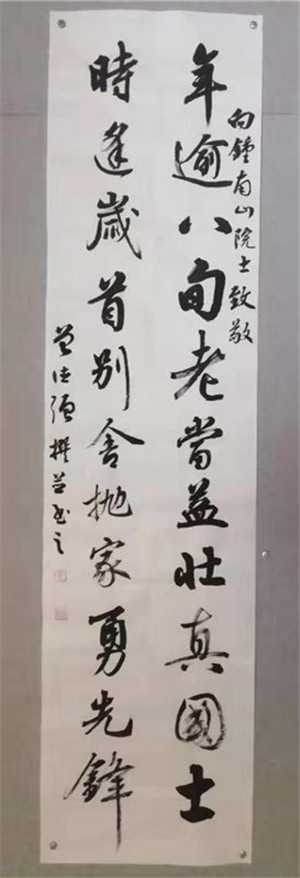 向鍾南山院士致敬
年逾八旬老當益壯真國士
時逢歲首別舍抛家勇先鋒
曾德强撰并书之